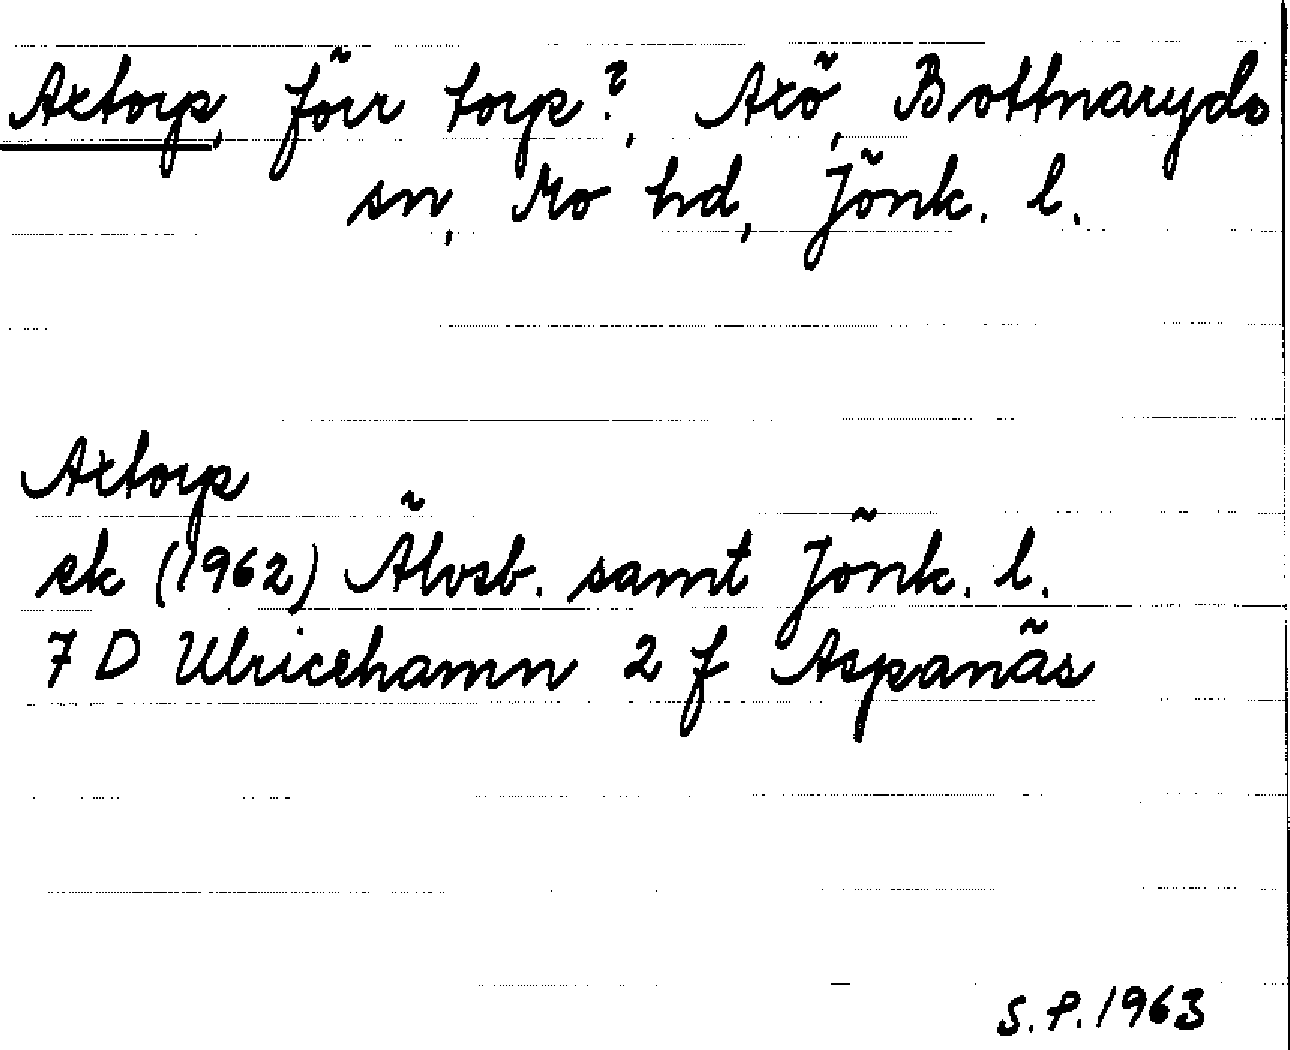 Axtorp, förr torp?, Axö, Bottnaryds
sn, Mo hd, Jönk. l.
Axtorp
ek (1962) Älvsb. samt Jönk. l.
7 D Ulricehamn 2 f Aspanäs
S.P. 1963